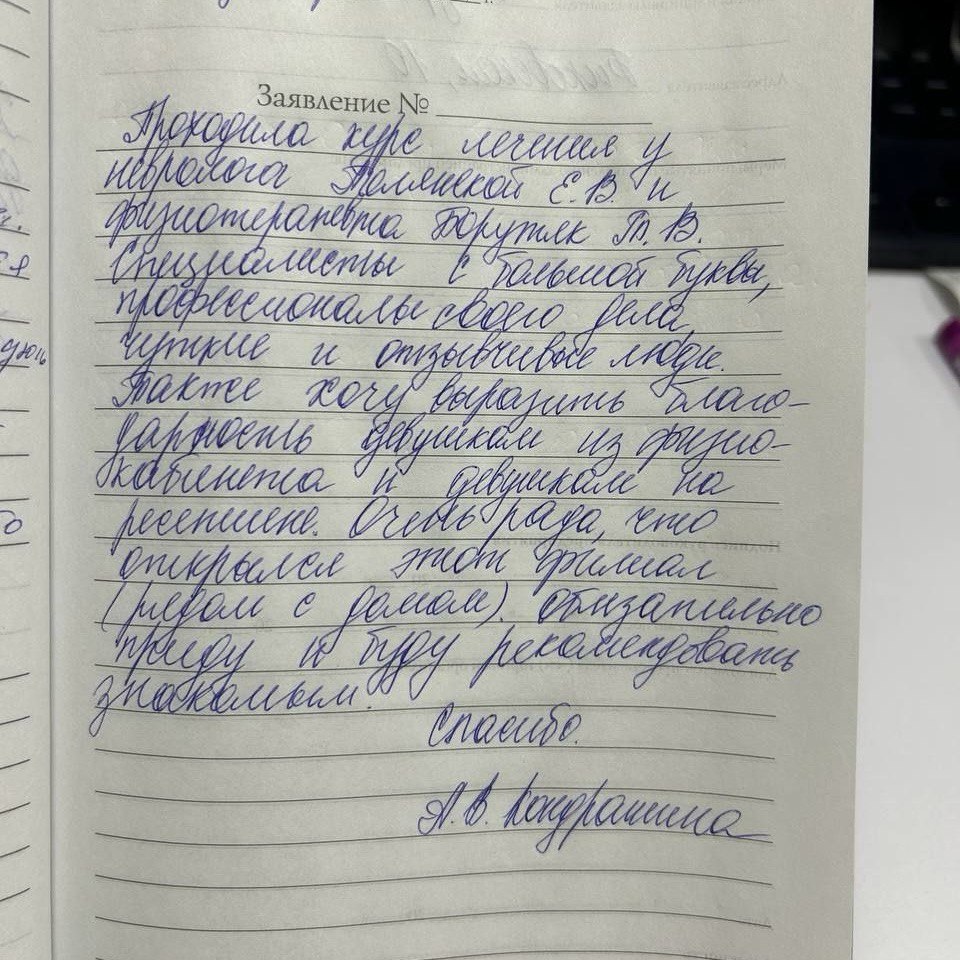 Заявление №
Проходила курс лечения у
невролога Толянской Е.В. и
физиотерапевта Борутяк Т.В.
Специалисты с большой буквы,
профессионалы своего дела,
чуткие и отзывчивые люди.
Также хочу выразить благо-
дарность девушкам из физио-
кабинета и девушкам на
ресепшене. Очень рада, что
открылся этот филиал
(рядом с домом). Обязательно
приду и буду рекомендовать
знакомым.
Спасибо.
А.В. Кондрашина